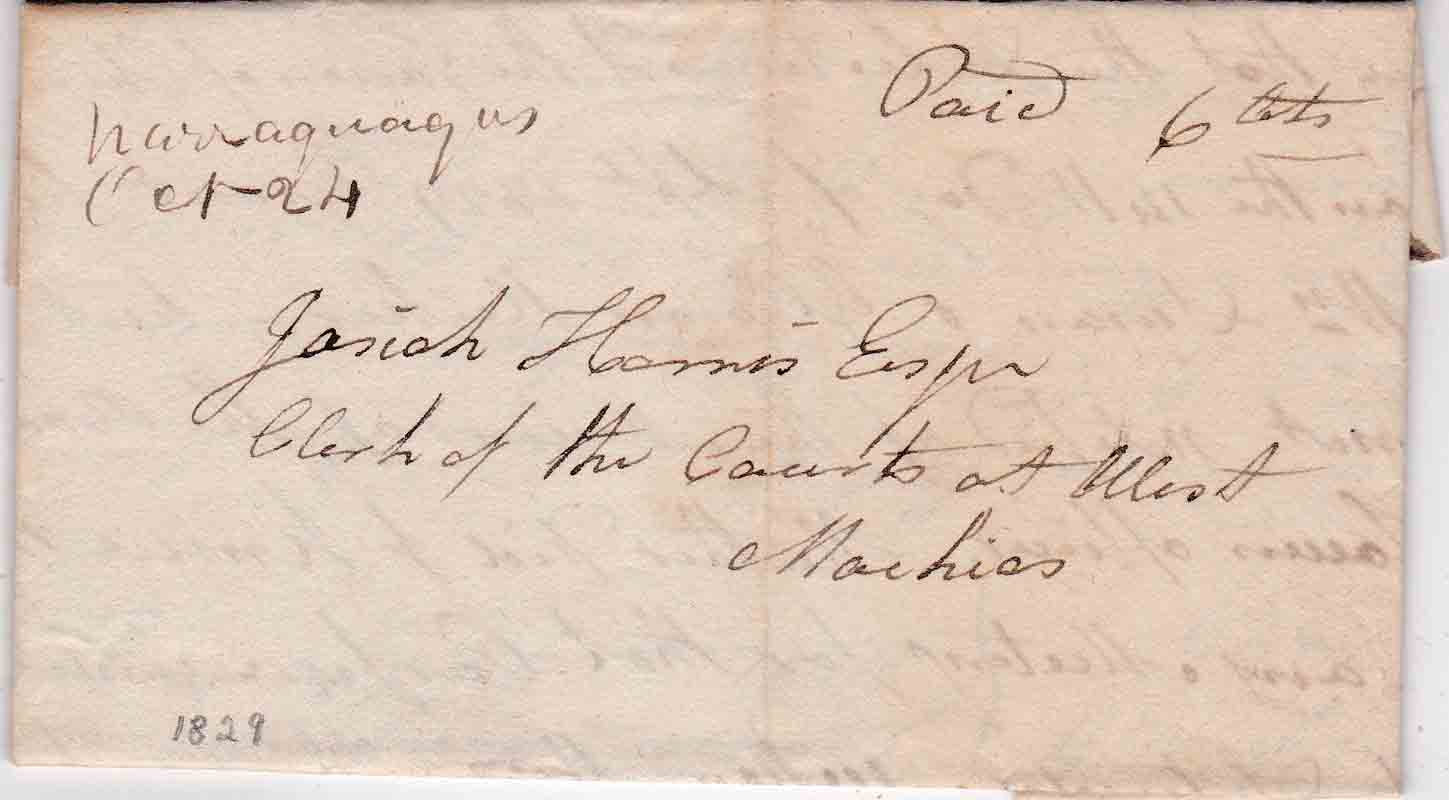 Narraguagus
Oct 24
Paid 6 Cts
Josiah Harris Esqr
Clerk of the Courts at West
Machias
1829